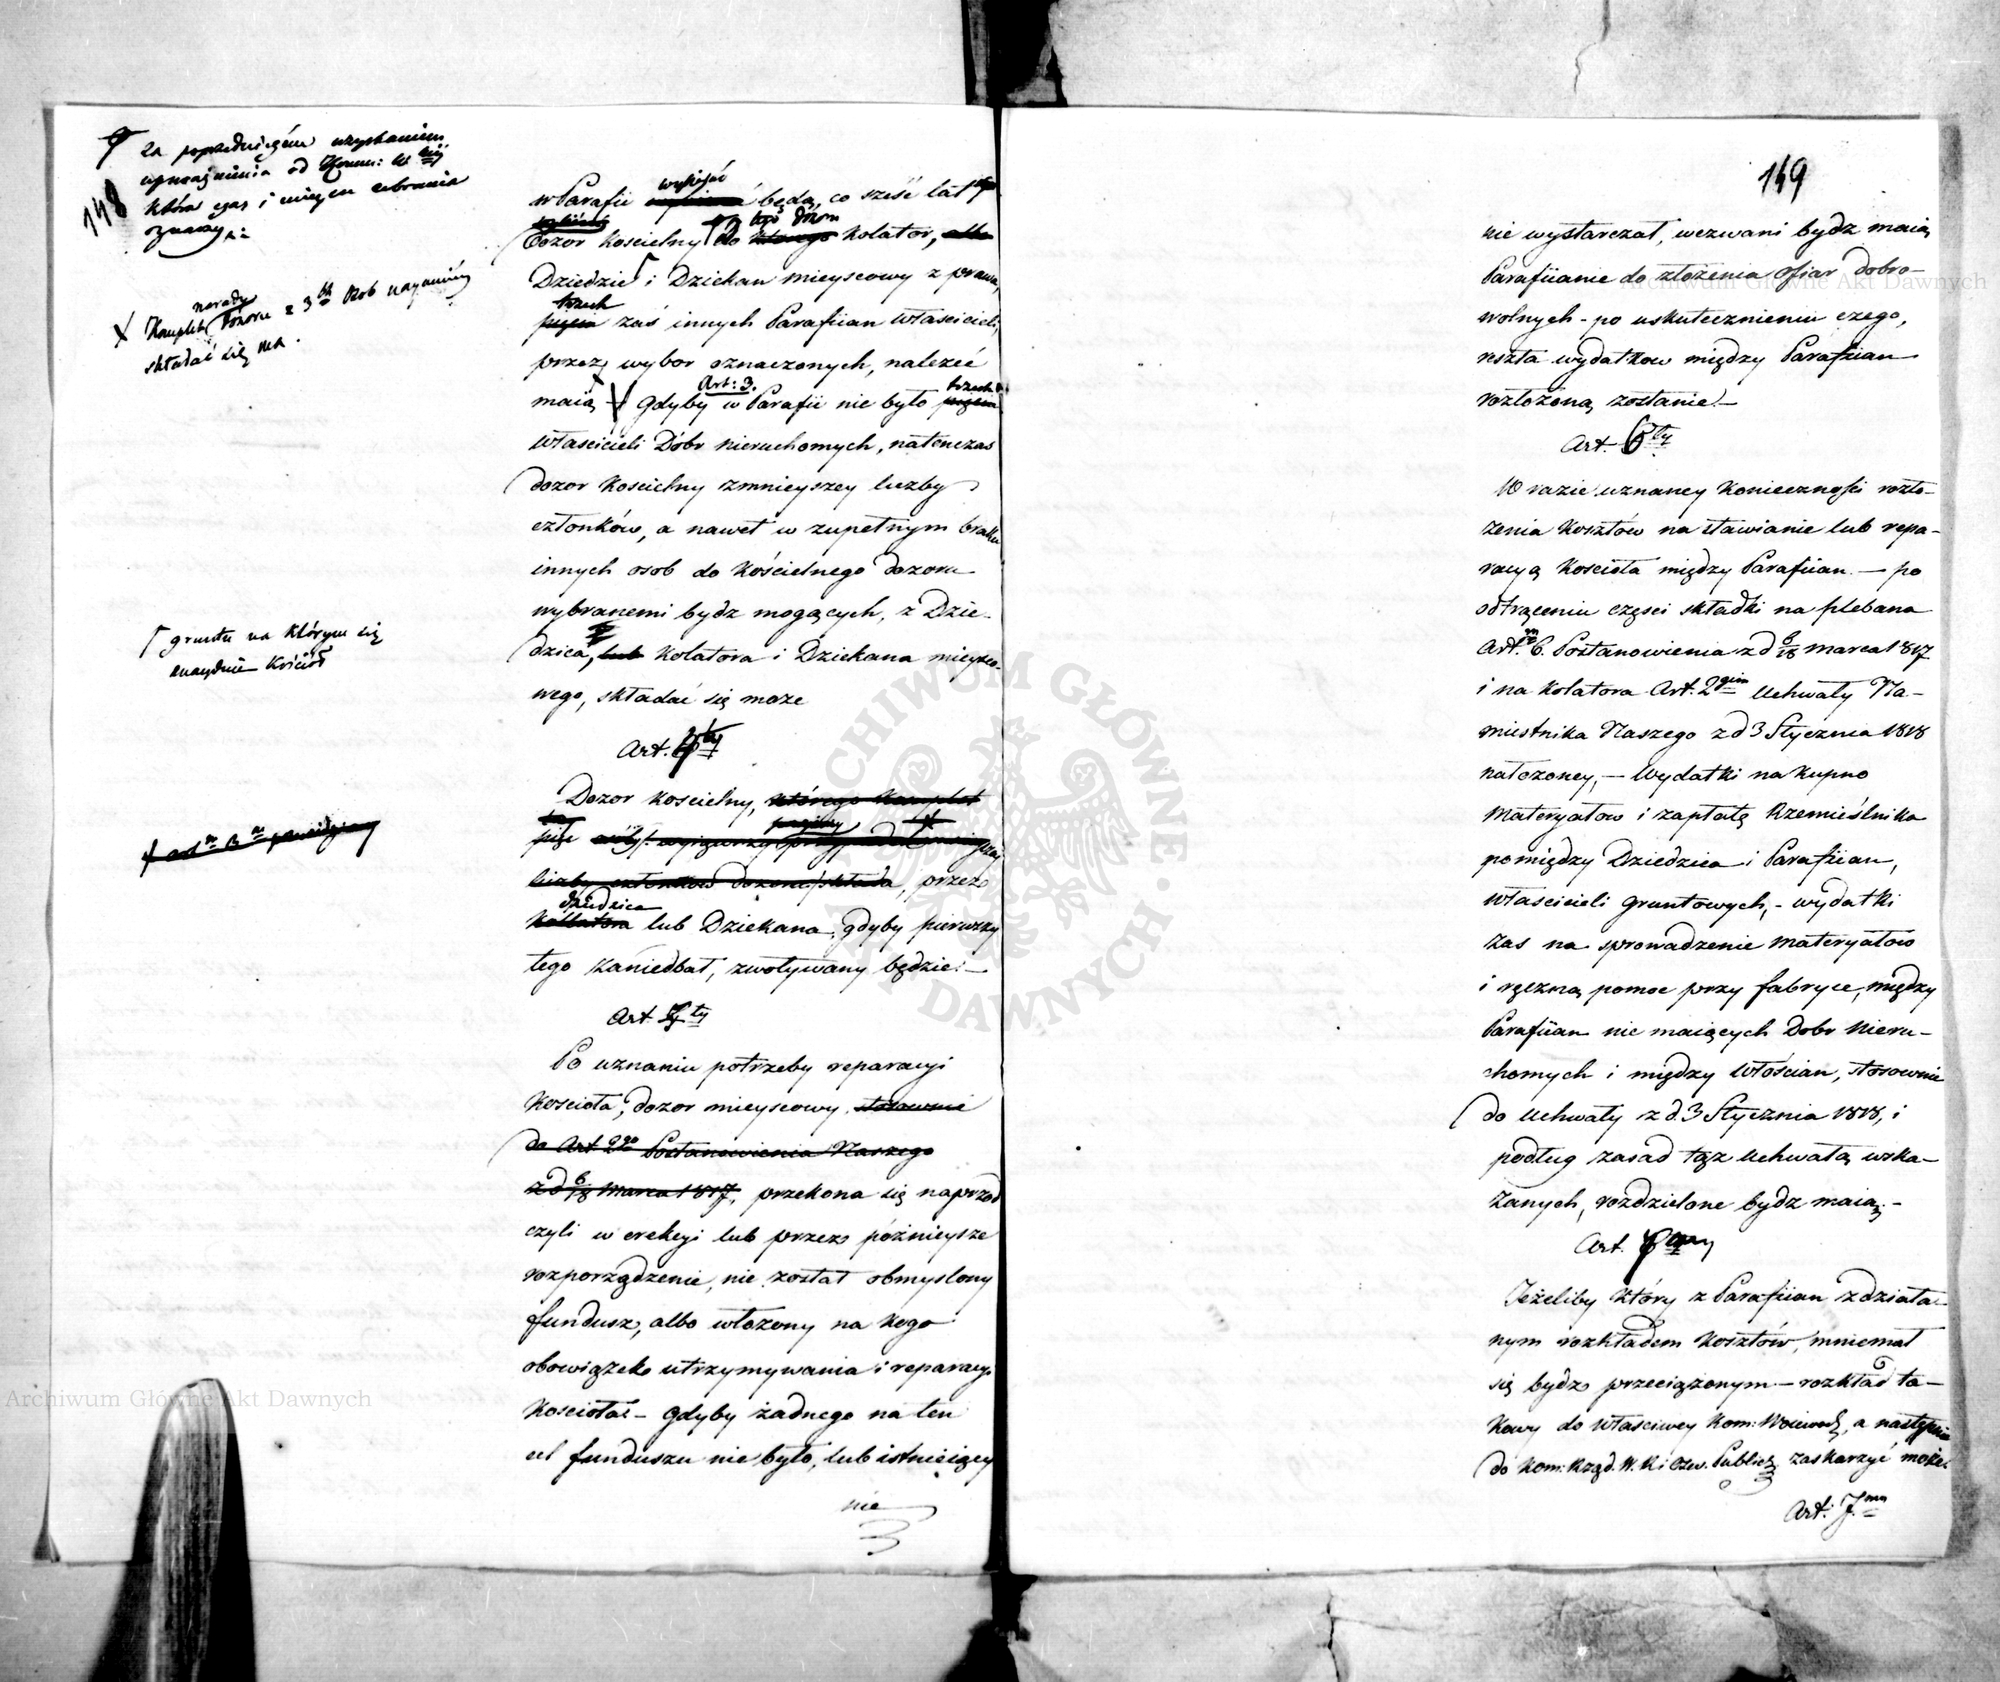 148
za poprzedniczém uzyskaniem
upoważnienia od Komm: W
która czas i mieysce zebrania
oznaczy.
narady
Komplet Dozoru z 3ch Osób naymniéy
składać się ma.
gruntu na którym się
znayduie Kościół
w Parafii wybierać będą, co sześć lat
Dozor Kościelny do którego Kolator, albo
tego dozoru
Dziedzic i Dziekan mieyscowy z prawa,
trzech
pięciu zaś innych Parafiian Właścicieli,
przez wybor oznaczonych, należeć
Art: 3.
maią Gdyby w Parafii nie było pięciu
trzech
Właścicieli Dóbr nieruchomych, natenczas
dozor Kościelny z mnieyszey liczby
członków, a nawet w zupełnym braku
innych osob do Kościelnego dozoru
wybranemi bydz mogących, z Dzie-
dzica, lub Kolatora i Dziekana mieysco-
wego, składać się może
Art.
Dozor Kościelny, którego Komplet
liczby członków dozoru składa, przez
dziedzica
Kollatora lub Dziekana, gdyby pierwszy
tego zaniedbał, zwoływany będzie.-
Art ty
Po uznaniu potrzeby reparacyi
Kościoła, dozor mieyscowy stosownie
do Art 2go Postanowienia Naszego
z d 6/18 Marca 1817, przekona się naprzod
czyli w erekcyi lub przez póżnieysze
rozporządzenie, nie został obmyślony
fundusz, albo włożony na kogo
obowiązek utrzymywania i reparacyi
Kościoła - Gdyby żadnego na ten
cel funduszu nie było, lub istnieiący
nie
149
nie wystarczał, wezwani bydz maią
Parafiianie do złożenia ofiar dobro-
wolnych - po uskutecznieniu czego,
reszta wydatkow między Parafiian
rozłożoną zostanie.-
Art. 6ty
W razie uznaney Konieczności rozło-
żenia Kosztów na stawianie lub repa-
racyą Kościoła między Parafiian. - po
odtrąceniu części składki na plebana
Art. 6. Postanowienia z d 6/18 Marca 1817
i na Kolatora Art. 2gim Uchwały Na-
miestnika Naszego z d 3 Stycznia 1818
nałożoney, - Wydatki na kupno
Materyałow i zapłatę Rzemieślnika
pomiędzy Dziedzica i Parafiian,
Właścicieli gruntowych, - wydatki
zas na sprowadzenie Materyałow
i ręczną pomoc przy fabryce, między
Parafiian nie maiących Dobr nieru-
chomych i między Włościan, stosownie
do Uchwały z d. 3 Stycznia 1818, i
podług zasad tąż Uchwałą wska-
zanych, rozdzielone bydz maią.-
Art.
Jeżeliby który z Parafiian zdziała-
nym rozkładem Kosztów, mniemał
się bydz przeciążonym - rozkład ta-
kowy do właściwey Kom: Woiewodz, a następnie
do Kom: Rząd. W. R. i Ośw. Publicz zaskarżyć może.
Art: 7.my